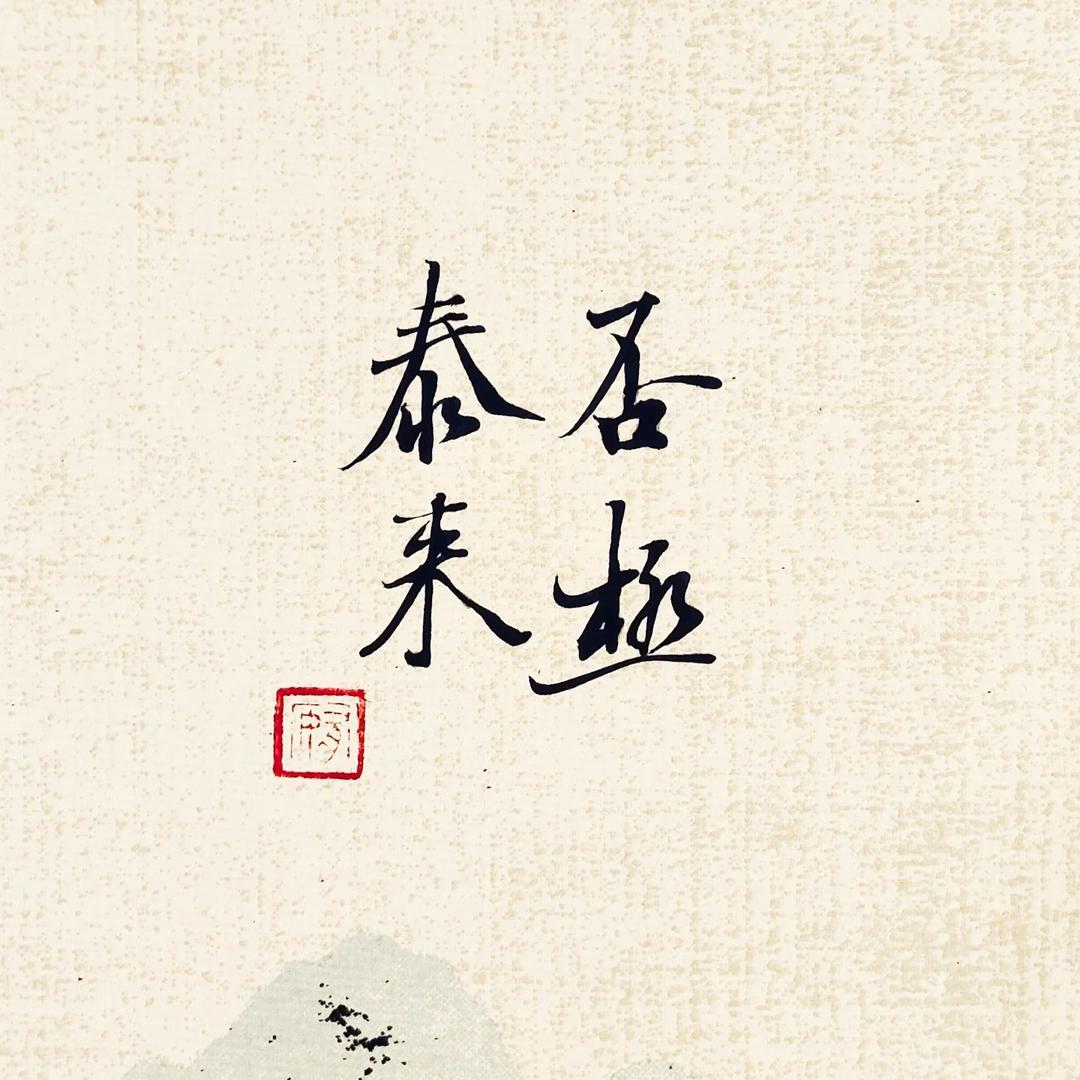 否極
泰来